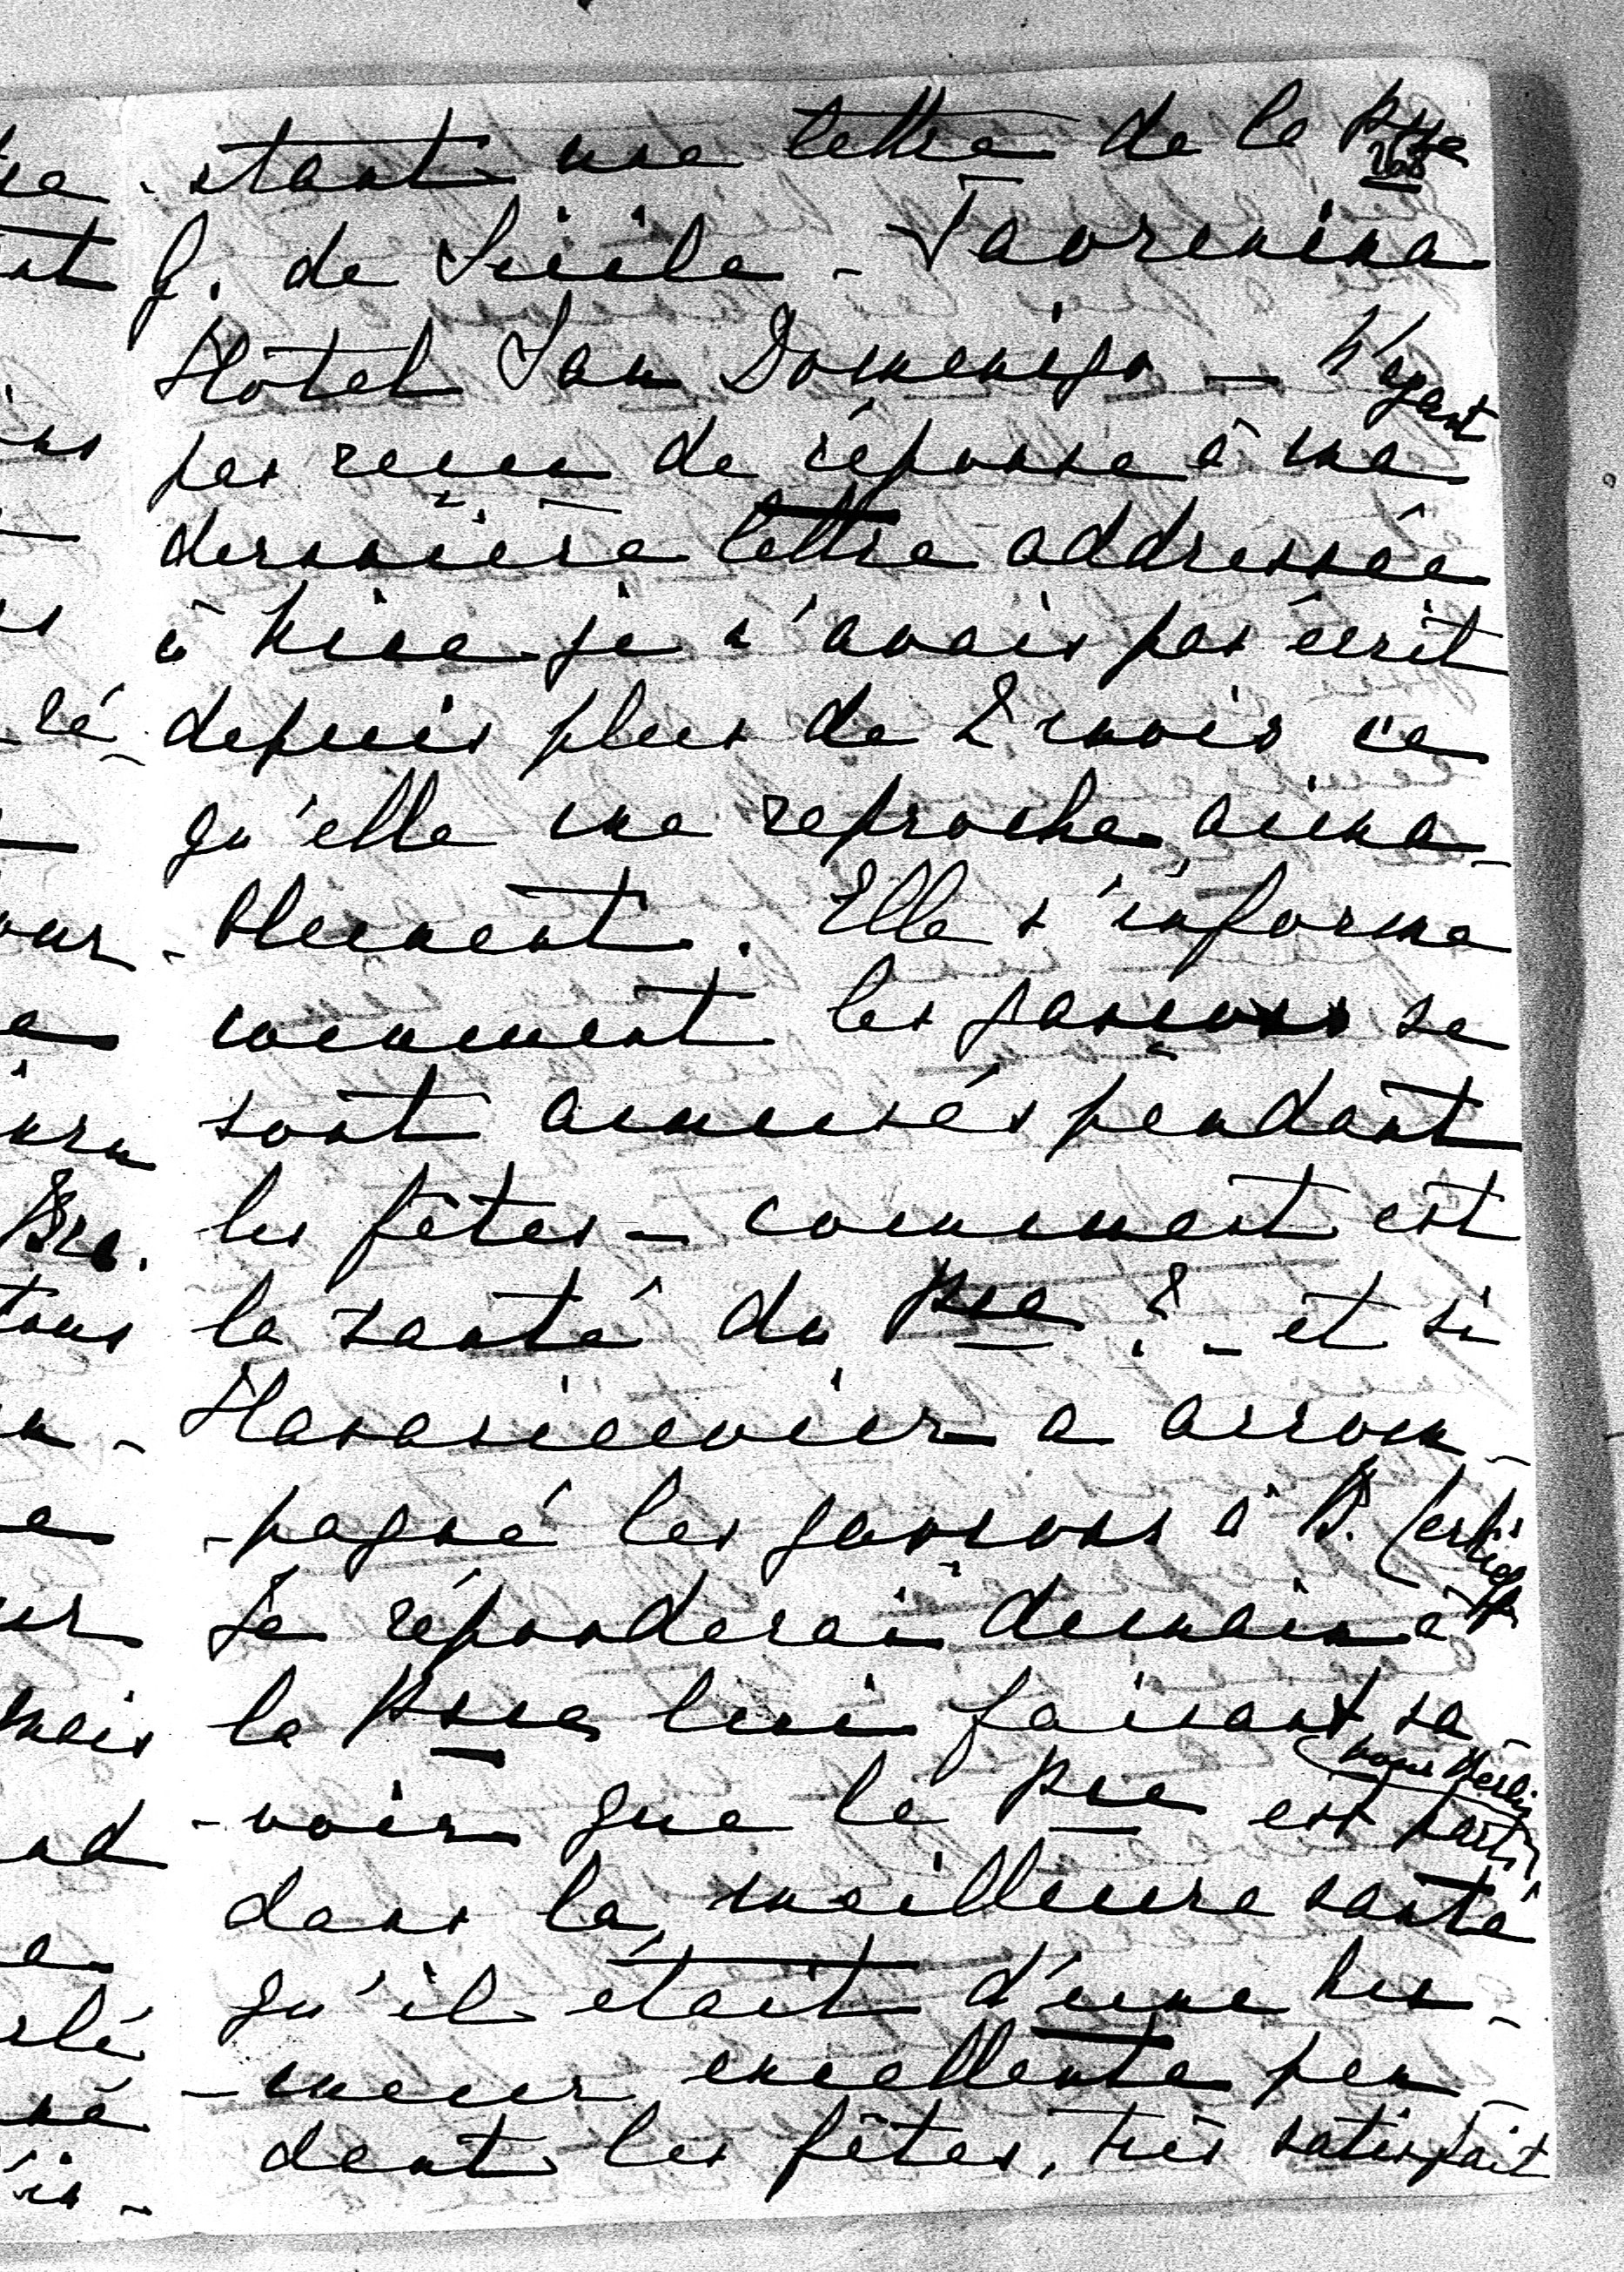 -stant une lettre de la Psse
268
G. de Sicile - Taormina
Hôtel San Domenigo - N'ayant
pas reçu de réponse à ma
dernière lettre addressée
à Nice je n'avais pas écrit
depuis plus de 2 mois ce
qu'elle me reproche aima-
-blement. Elle s'informe
comment les garçons se
sont amusés pendant
les fêtes - comment est
la santé du Pce ? - et si
a accom-
-pagné les garçons à P.
Je réponderai demain à
la Psse lui faisant sa-
-voir que le Pce est parti
pour Berlin
dans la meilleure santé
qu'il était d'une hu-
-meur excellente pen-
dant les fêtes, très satisfait